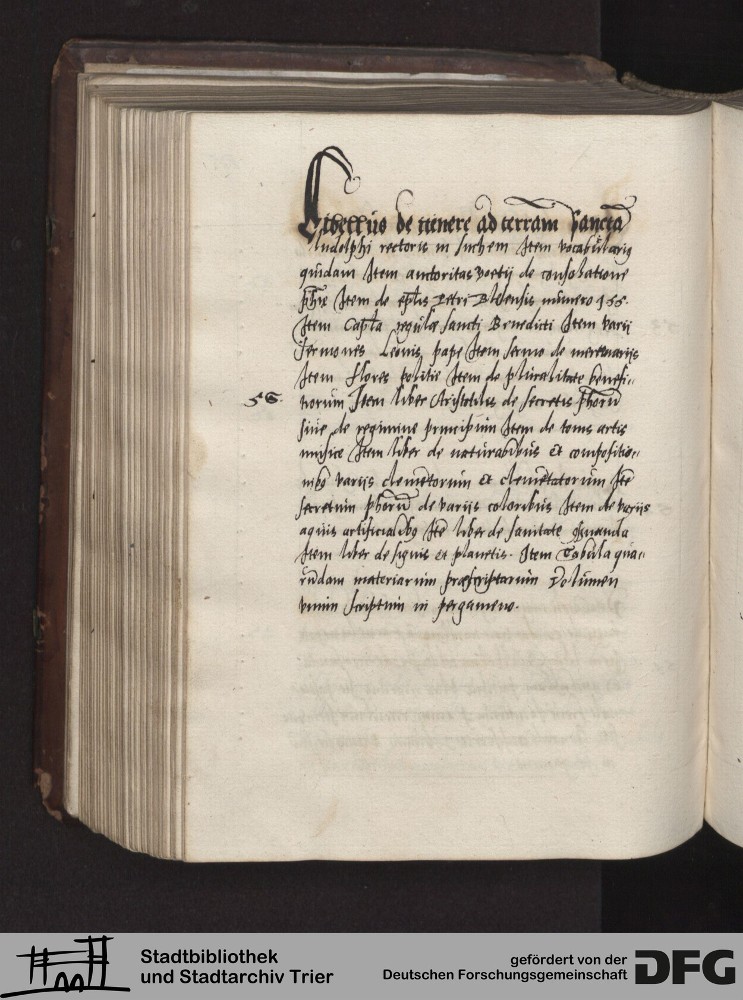 Libellus de itinere ad terram sancta
ludolphi rectoris in suchem Item vocabularig
quidam Item auctoritas boetij de consolatione
phie Item de eplis Petri Blesensis numero 155.
Item Capta regule sancti Benedicti Item varii
sermones Leonis pape Item sermo de mercenarijs
Item flores politie Item de pluralitate benefi-
56. tiorum Item liber Aristotilis de secretis phorū
siue de regimine principum Item de tonis artis
musice Item liber de naturalibus et compositio-
nibꝰ varijs elemētorum et elemētatorum Itē
secretum phorū de varijs coloribus Item de varijs
aquis artificialibꝰ Itē liber de sanitate
Item liber de signis et planetis. Item Tabula qua-
rūdam materiarum praescriptarum Volumen
vnum scriptum in pergameno.
Stadtbibliothek
und Stadtarchiv Trier
gefördert von der
Deutschen Forschungsgemeinschaft
DFG